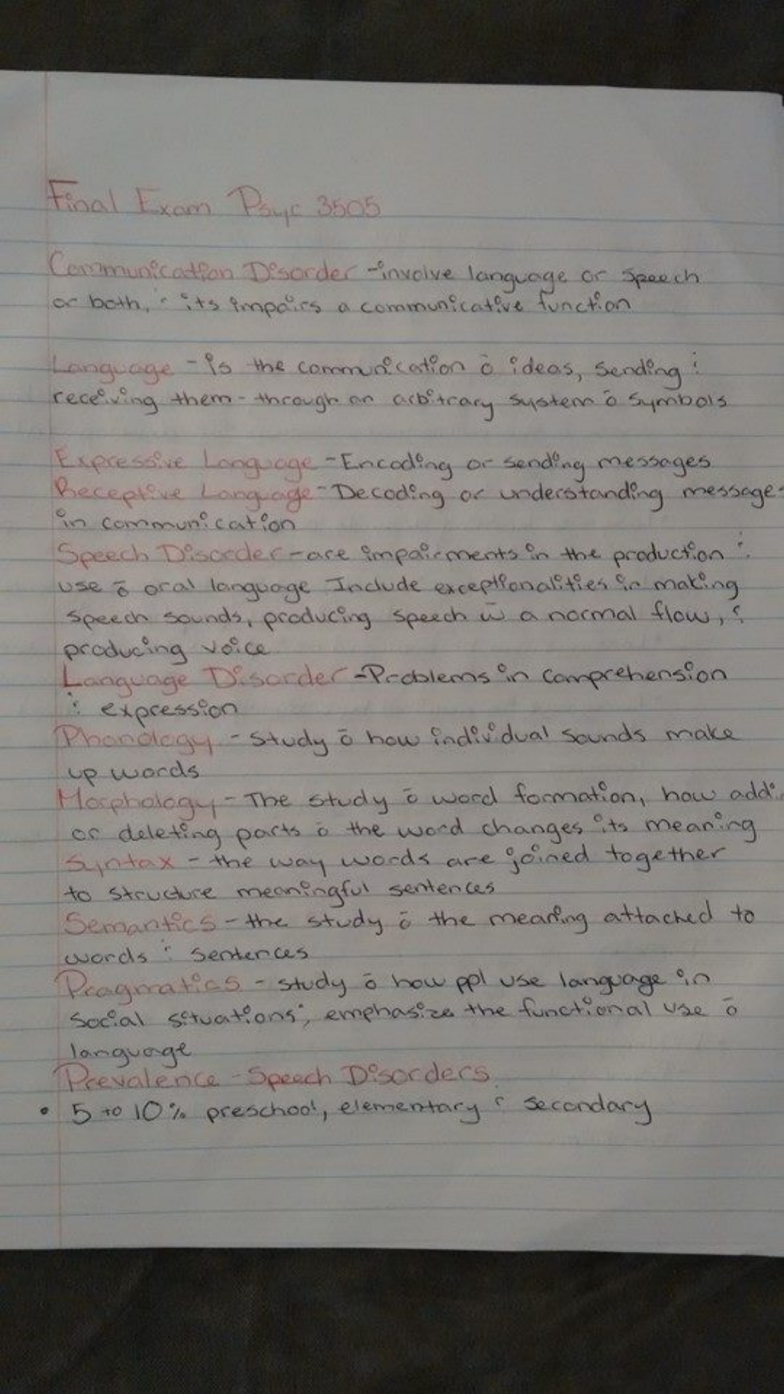 Final Exam Psyc 3505
Communication Disorder - involve language or speech
or both, : its impairs a communicative function
Language - is the communication ō ideas, sending :
receiving them - through an arbitrary system ō symbols
Expressive Language - Encoding or sending messages
Receptive Language - Decoding or understanding messages
in communication
Speech Disorder - are impairments in the production :
use ō oral language Include exceptionalities in making
speech sounds, producing speech w̄ a normal flow, :
producing voice
Language Disorder - Problems in comprehension
: expression
Phonology - study ō how individual sounds make
up words
Morphology - The study ō word formation, how addi
or deleting parts ō the word changes its meaning
Syntax - the way words are joined together
to structure meaningful sentences
Semantics - the study ō the meaning attached to
words : sentences
Pragmatics - study ō how ppl use language in
social situations; emphasize the functional use ō
language
Prevalence - Speech Disorders
• 5 to 10% preschool, elementary : secondary